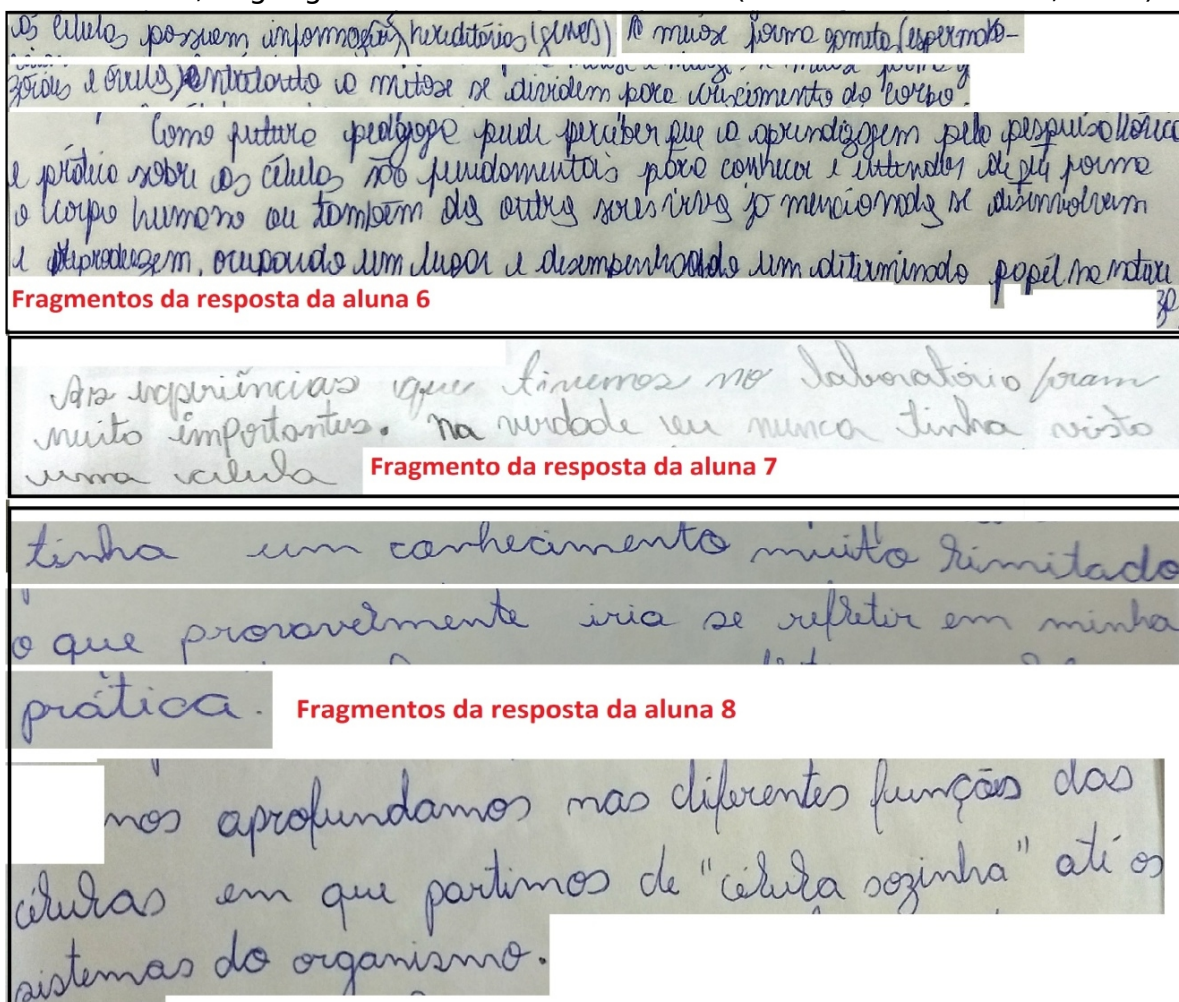 as células possuem informações hereditárias (genes)) A meiose forma gameta (espermato-
zóides e óvulos) entretanto a mitose se dividem para crescimento do corpo.
Como futura pedagoga pude perceber que a aprendizagem pela pesquisa teórica
e prática sobre as células são fundamentais para conhecer e entender de que forma
o corpo humano ou também dos outros seres vivos já mencionados se desenvolvem
e reproduzem, ocupando um lugar e desempenhando um determinado papel na nature
za
Fragmentos da resposta da aluna 6
As experiências que tivemos no laboratório foram
muito importantes. na verdade eu nunca tinha visto
uma celula
Fragmento da resposta da aluna 7
tinha um conhecimento muito limitado
o que provavelmente iria se refletir em minha
prática.
Fragmentos da resposta da aluna 8
nos aprofundamos nas diferentes funções das
células em que partimos de "célula sozinha" até os
sistemas do organismo.